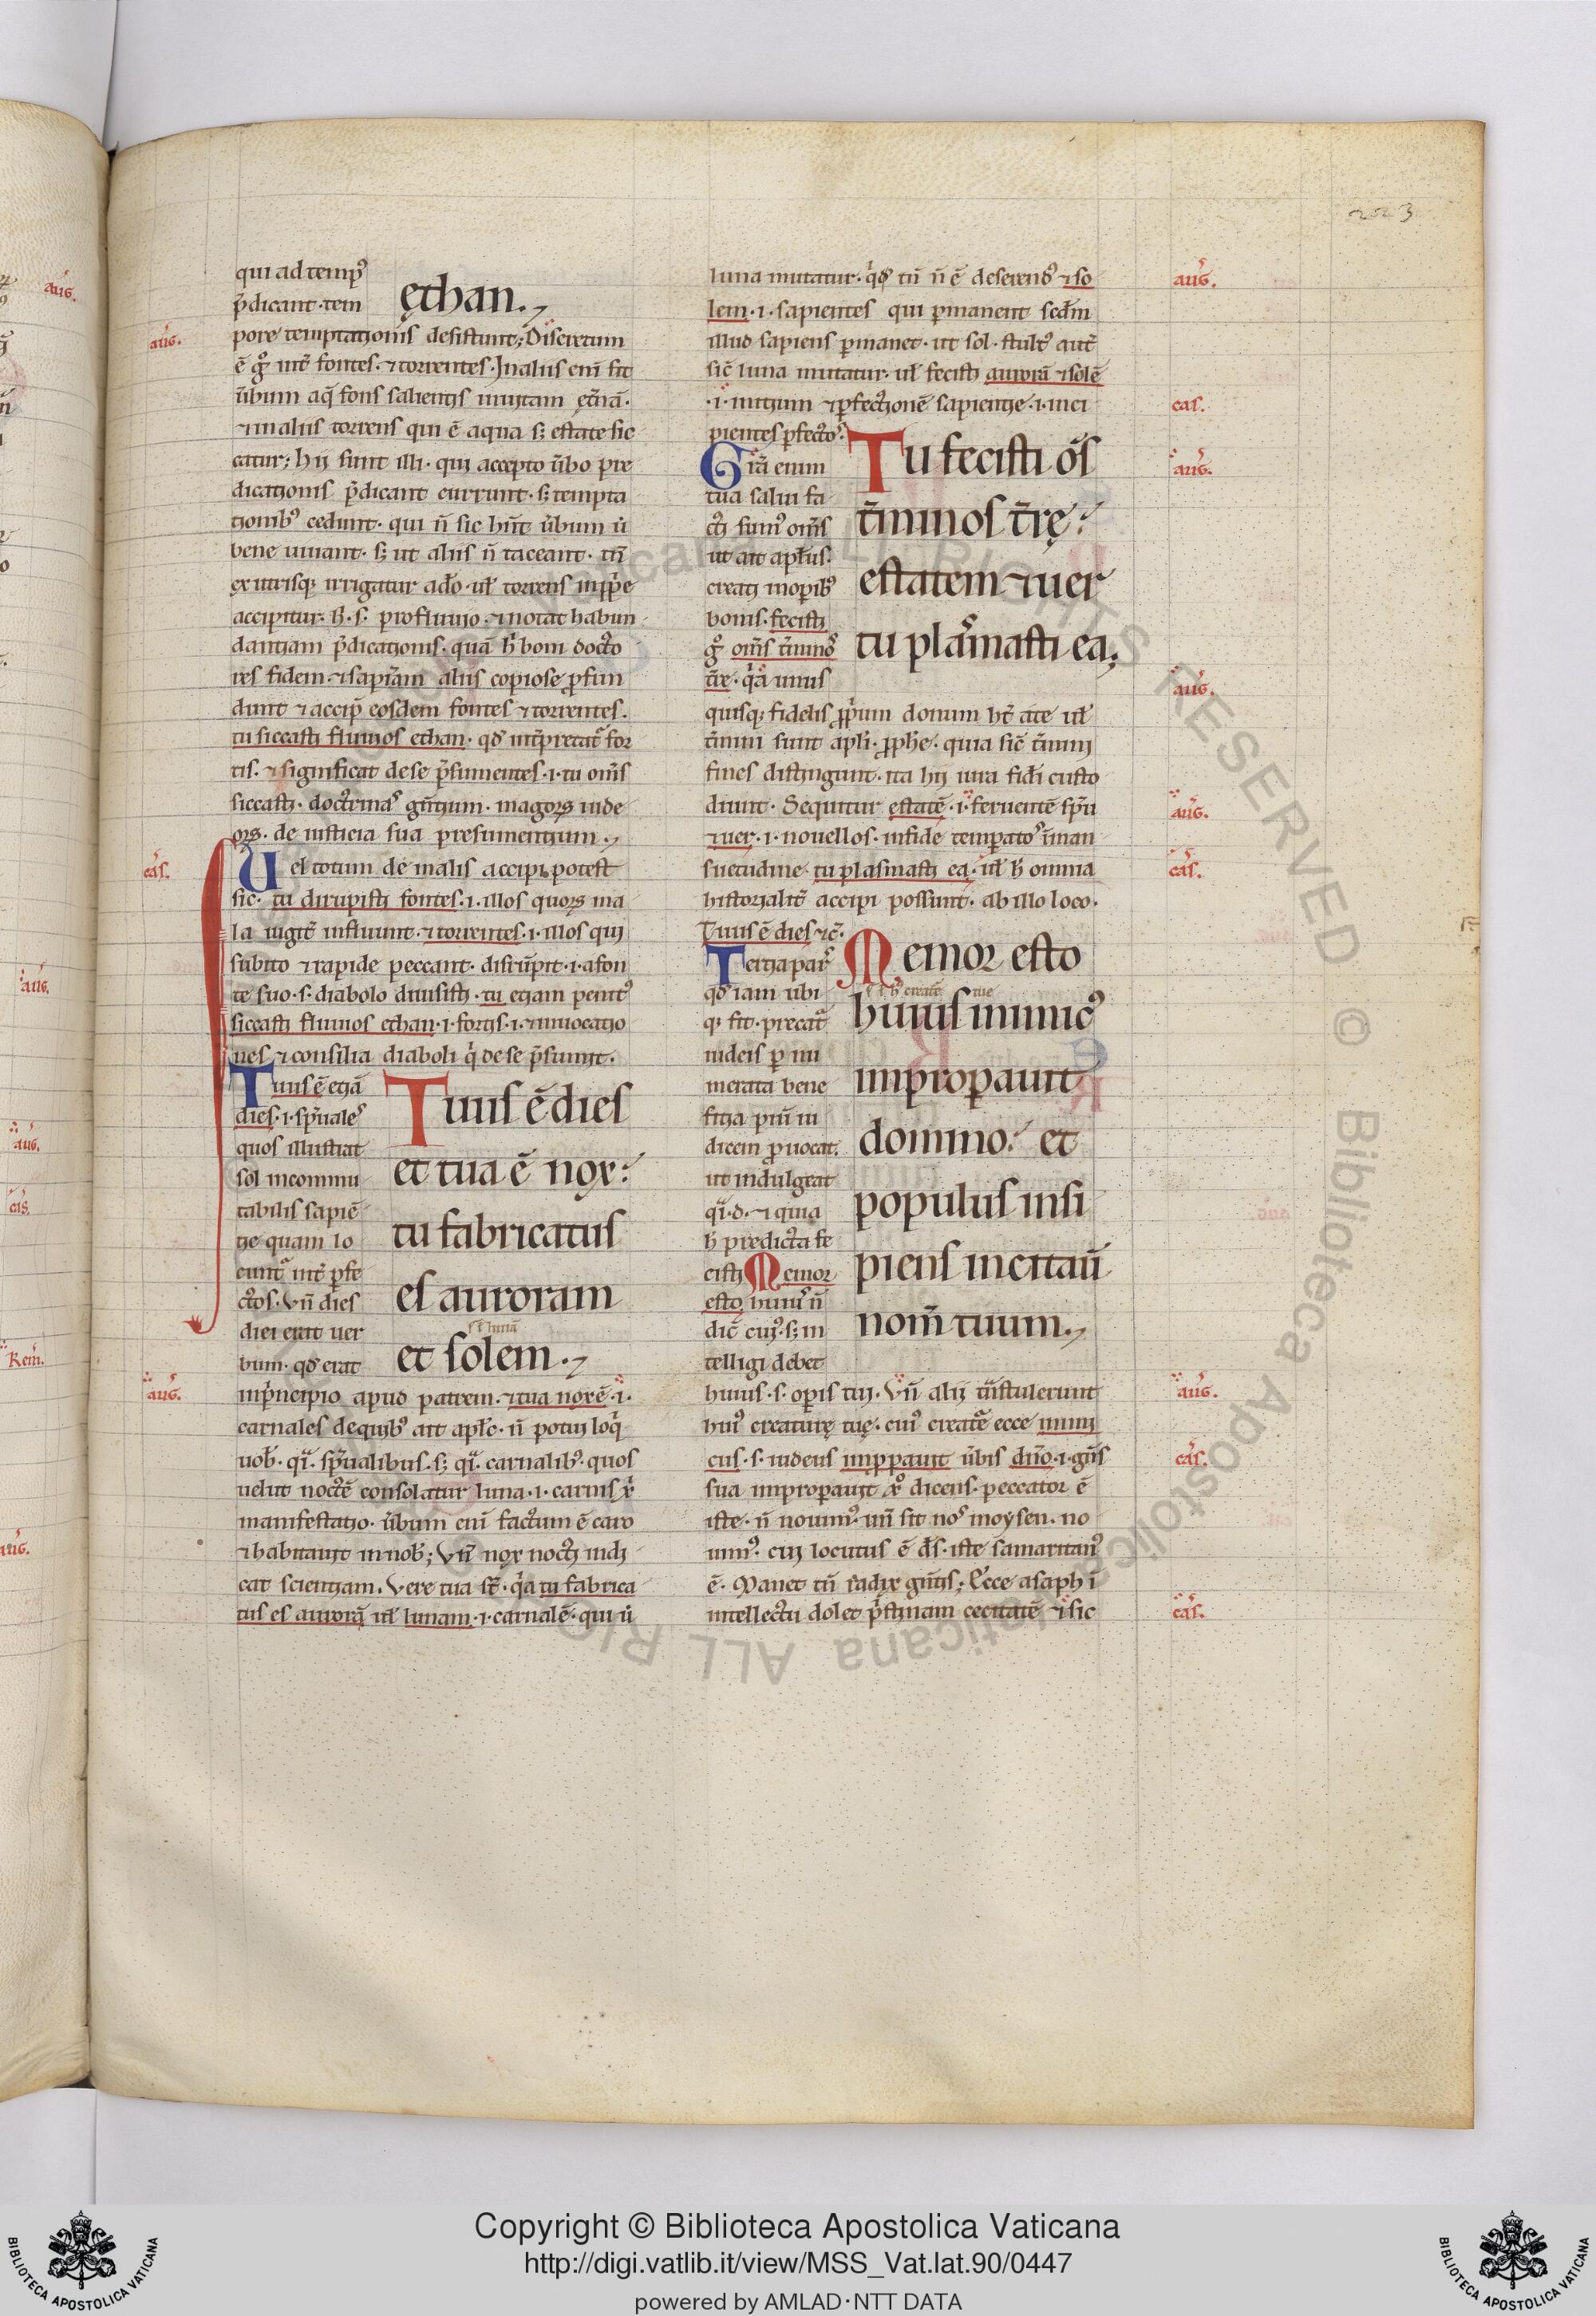 223
qui ad temp᷒
p̄dicant· tem
ęthan.
pore temptationis desistunt; Discretum
ē gͦ int̄ fontes· ⁊ torrentes· In aliis eni fit
ūbum aq̄ fons salientis in uitam ęt̄nā·
⁊ in aliis torrens qui ē aqua s; estate sic
catur; hij sunt illi· qui accepto ūbo pre
dicationis p̄dicant currunt· s; tempta
tionib᷒ cedunt· qui n̄ sic hn̄t ūbum ū
bene uiuant· s; ut aliis n̄ taceant· tn̄
ex utrisq; irrigatur a dō· ul̄ torrens in pp̄e
accipitur· h̄· s· pro fluuio· ⁊ notat habun
dantiam p̄dicationis· quā h̄ boni docto
res fidem· ⁊ sapiam aliis copiose p̄fun
dunt ⁊ accip̄ eosdem fontes ⁊ torrentes.
tu siccasti fluuios ethan· qd̄ int̄pretat̄ for
tis· ⁊ significat de se p̄sumentes· i· tu om̄s
siccasti· doctrinas gn̄tium· magorꝝ iude
orꝝ· de iusticia sua presumentium.
Uel totum de malis accipi potest
sic· tu dirupisti fontes· i· illos quorꝝ ma
la iugit̄ influunt· ⁊ torrentes· i· illos qui
subito ⁊ rapide peccant· disrūpit· i· a fon
te suo· s· diabolo diuisisti· tu etiam penit᷒
siccasti fluuios ethan· i· fortis· i· ⁊ inuocatio
nes ⁊ consilia diaboli q̄ de se p̄sumit.
Tuus ē etiā
dies· i· sp̄uales
quos illustrat
sol incommu
tabilis sapiē
tie quam lo
cunt᷒ int̄ p̄fe
ctos· Vn̄ dies
diei erat uer
bum· qd̄ erat
Tuus ē dies
et tua ē nox:
tu fabricatus
es auroram
ł lunā
et solem.
in p̄ncipio apud patrem· ⁊ tua nox ē· i·
carnales de quib᷒ ait apłc· n̄ potui loq̄
uob̄· q̄· sp̄ualibus· s; q̄· carnalib᷒· quos
uelut noctē consolatur luna· i· carnis xp̄i
manifestatio· ūbum eni factum ē caro
⁊ habitauit in nob̄; Vn̄ nox nocti indi
cat scientiam. Vere tua st̄· q̄a tu fabrica
tus es aurorā ul̄ lunam· i· carnalē· qui ū
luna mutatur· q̄d tn̄ n̄ ē deserend᷒ ⁊ so
lem· i· sapientes qui p̄manent sedm
illud sapiens p̄manet· ut sol· stult᷒ aut̄
sic̄ luna mutatur· ul̄ fecisti aurorā ⁊ solē
·i· initium ⁊ p̄fectionē sapientie· i· inci
pientes p̄fectos·
Gr̄a enim
tua salui fa
cti sum᷒ om̄s
ut ait apl̄us·
creati in operib᷒
bonis· fecisti
gͦ om̄s t̄mino᷒
t̄re· q̄a unus
Tu fecisti om̄s
t̄minos t̄rę:
estatem ⁊ uer
tu plasmasti ea;
quisq; fidelis pp̄um donum ht̄ a te ul̄
t̄mini sunt apl̄i· pp̄he· quia sic̄ t̄mini
fines distingunt· ita hij iura fidei custo
diunt· Sequitur estatē· i· feruentē sp̄u
⁊ uer· i· nouellos· in fide temperatos in man
suetudine· tu plasmasti ea· ul̄ h̄ omnia
historialit̄ accipi possunt· ab illo loco·
Tuus ē dies ⁊c̄·
Tertia pars
qd̄ iam ubi
q; fit· precat̄
iudeis p̄ nu
merata bene
ficia p̄iu iu
dicem p̄uocat·
ut indulgeat
q̄· d· ⁊ quia
h̄ predicta fe
cisti Memor
esto, huius n̄
dic̄ cui᷒· s; in
telligi debet
Memor esto
huius inimic᷒
improperauit
domino: et
populus insi
piens incitauit
nom̄ tuum.
huius· s· operis tui· Vn̄ alij t̄nstulerunt
hui᷒ creaturę tuę· cui᷒ creatē ecce inimi
cus· s· iudeus improperauit ūbis dn̄o· i· gn̄s
sua improperauit xp̄o dicens· peccator ē
iste· n̄ nouim᷒· un̄ sit nos moysen· no
uim᷒· cui locutus ē ds̄· iste samaritan᷒
ē· Manet tn̄ radix gn̄tis; Ecce asaph i
intellectu dolet p̄stinam cecitatē ⁊ sic
aug.
cas.
aug.
aug.
cas.
aug.
aug.
aug.
cas.
aug.
cas.
cas.
Copyright © Biblioteca Apostolica Vaticana
http://digi.vatlib.it/view/MSS_Vat.lat.90/0447
powered by AMLAD·NTT DATA
BIBLIOTECA APOSTOLICA VATICANA
BIBLIOTECA APOSTOLICA VATICANA